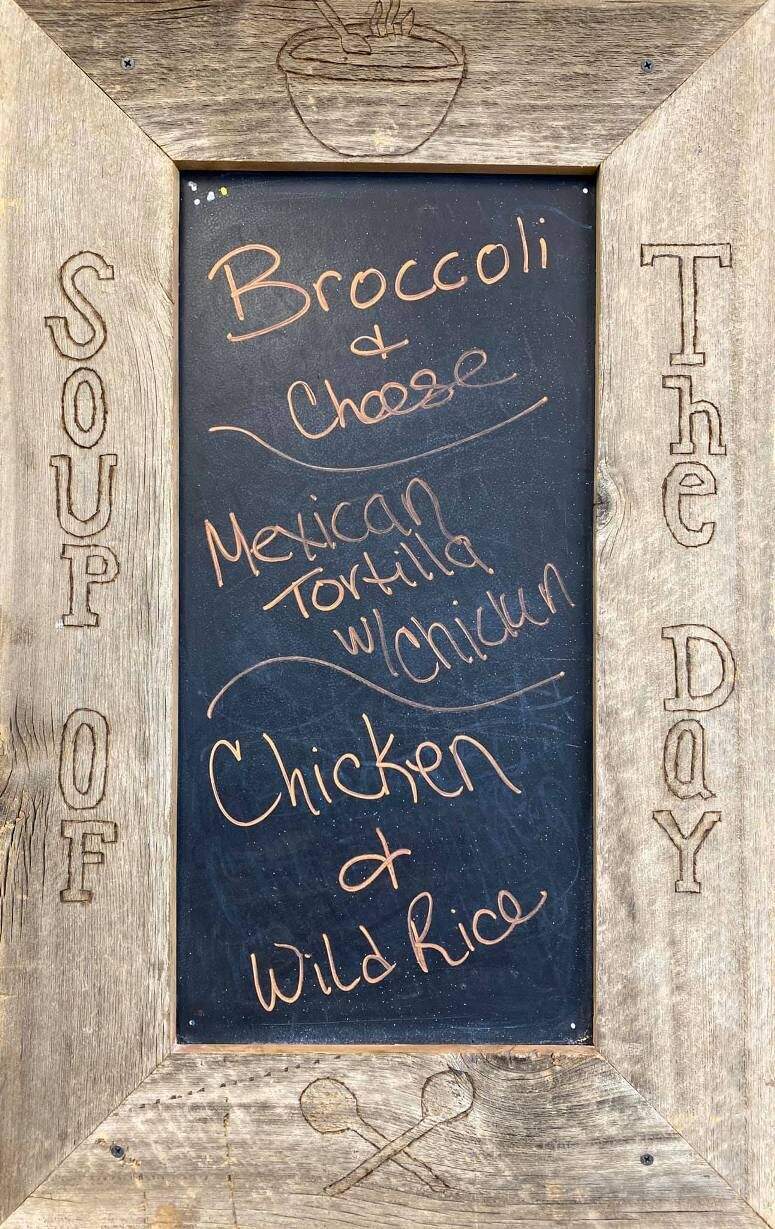 SOUP OF
The Day
Broccoli
&
Cheese
Mexican
Tortilla
w/Chicken
Chicken
&
Wild Rice